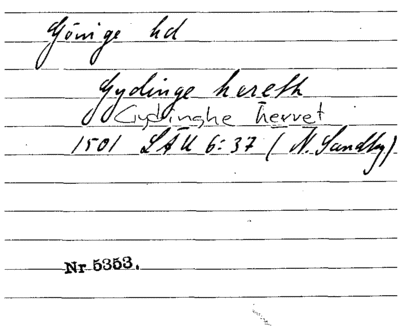 Göinge hd
Gydinge hereth
Gydinghe hērvet
1501 LÄU 6:37 (N. Sandby)
Nr 5353.